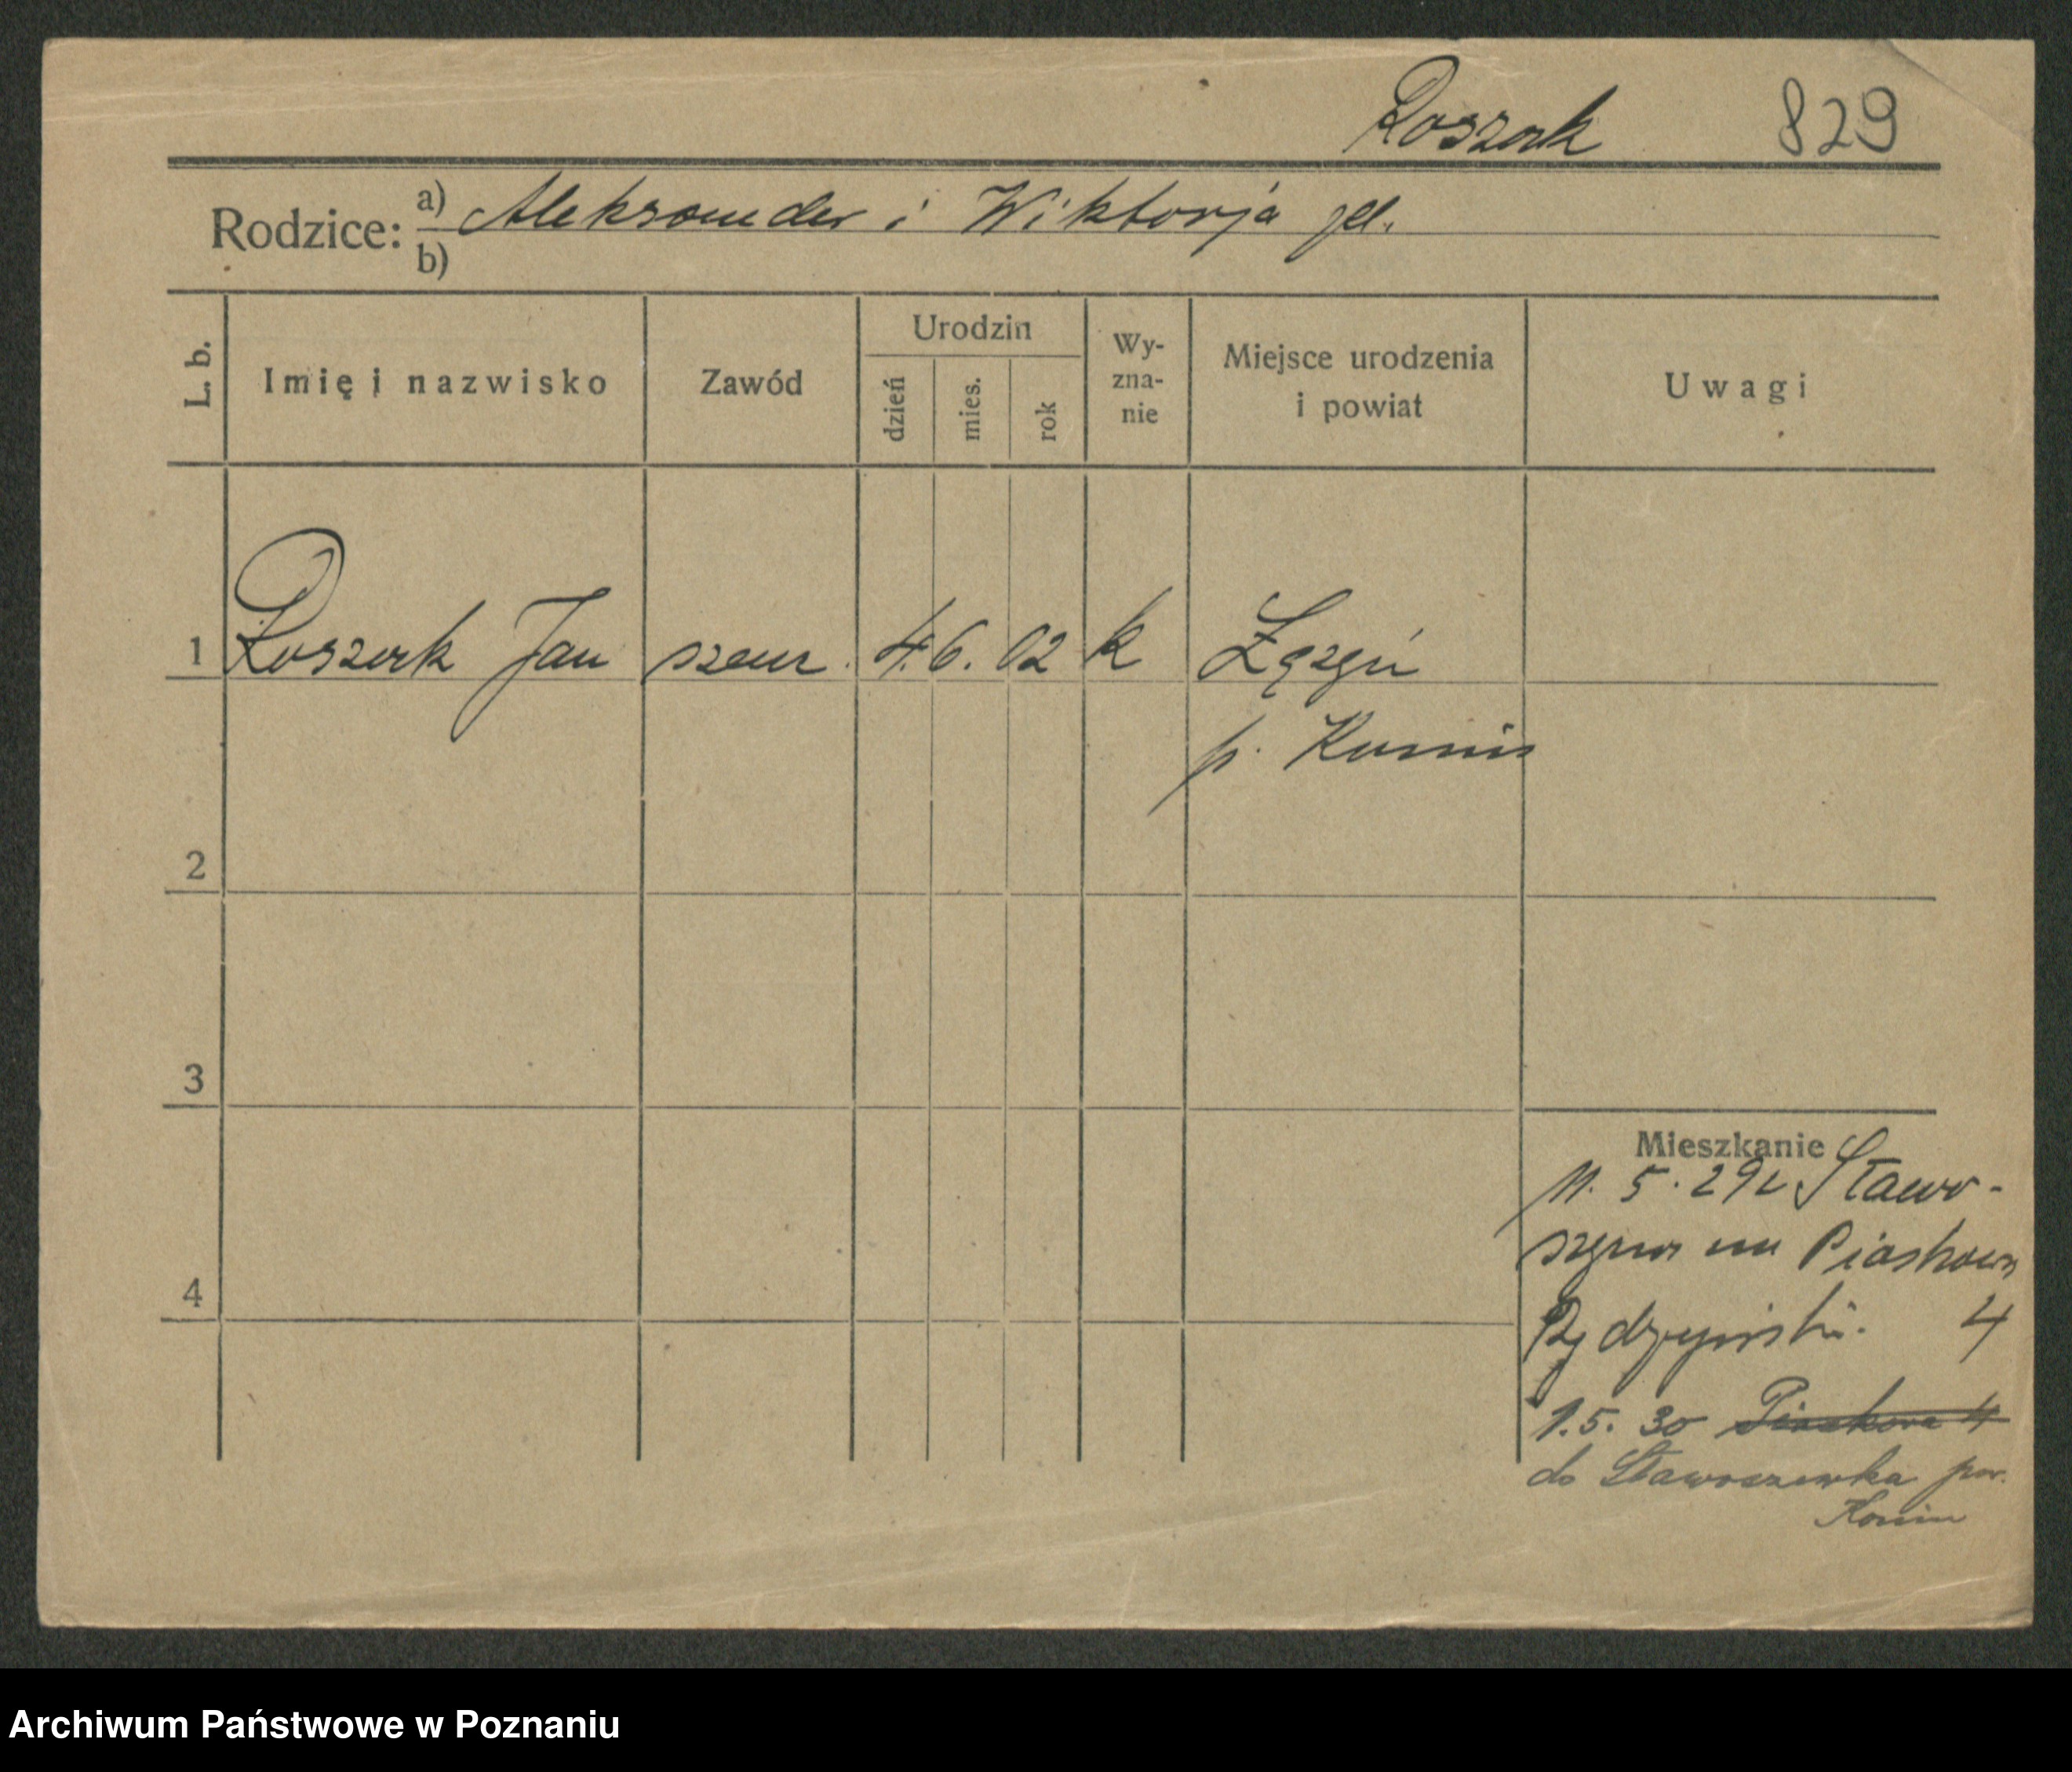 Roszak 829
Rodzice: a) Aleksander i Wiktorja
b)
L. b. Imię i nazwisko Zawód Urodzin dzień mies. rok Wy-zna-nie Miejsce urodzenia i powiat Uwagi
1 Roszak Jan szewc 4. 6. 02 k
p. Konin
2
3
4
Mieszkanie
11. 5. 29 z Stawo-
na Piaskowa
4
1. 5. 30 Piaskowa 4
do Stawoszewka pow.
Konin
Archiwum Państwowe w Poznaniu